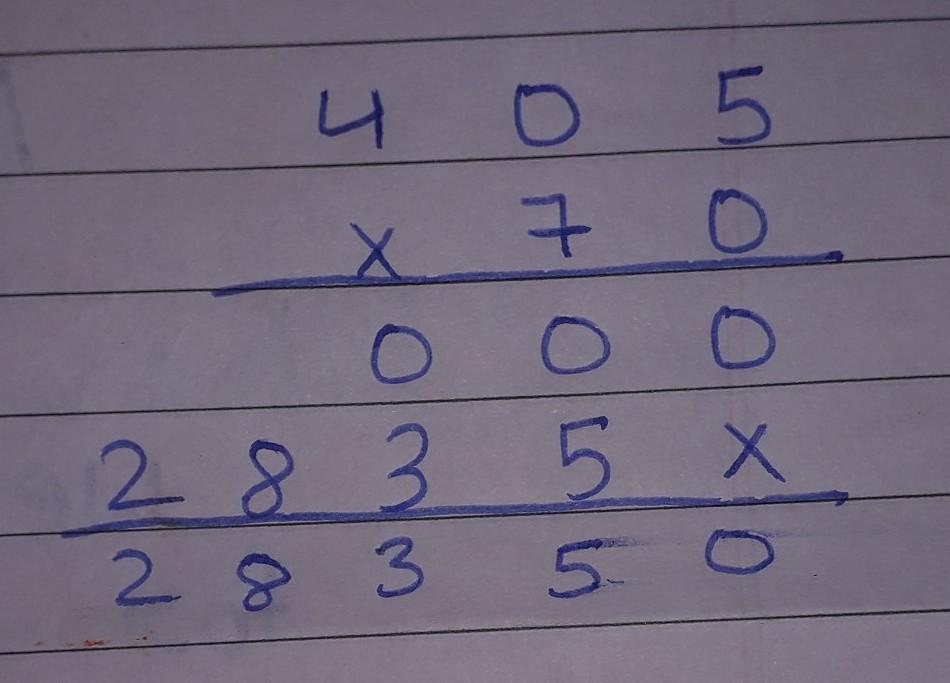 4 0 5
x 7 0
0 0 0
2 8 3 5 x
2 8 3 5 0